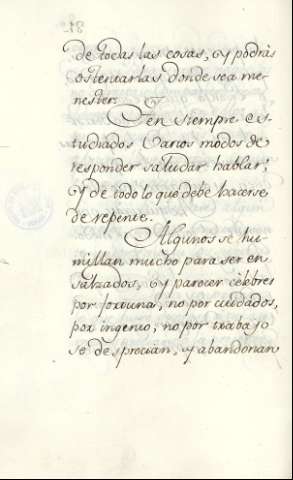 de todas las cosas, y podrás
ostentarlas donde sea me-
nester.
Ten siempre es-
tudiados varios modos de
responder saludar hablar;
y de todo lo que debe hacerse
de repente.
Algunos se hu-
millan mucho para ser en
salzados, y parecer célebres
por fortuna, no por cuidados,
por ingenio, no por trabajo
se desprecian, y abandonan